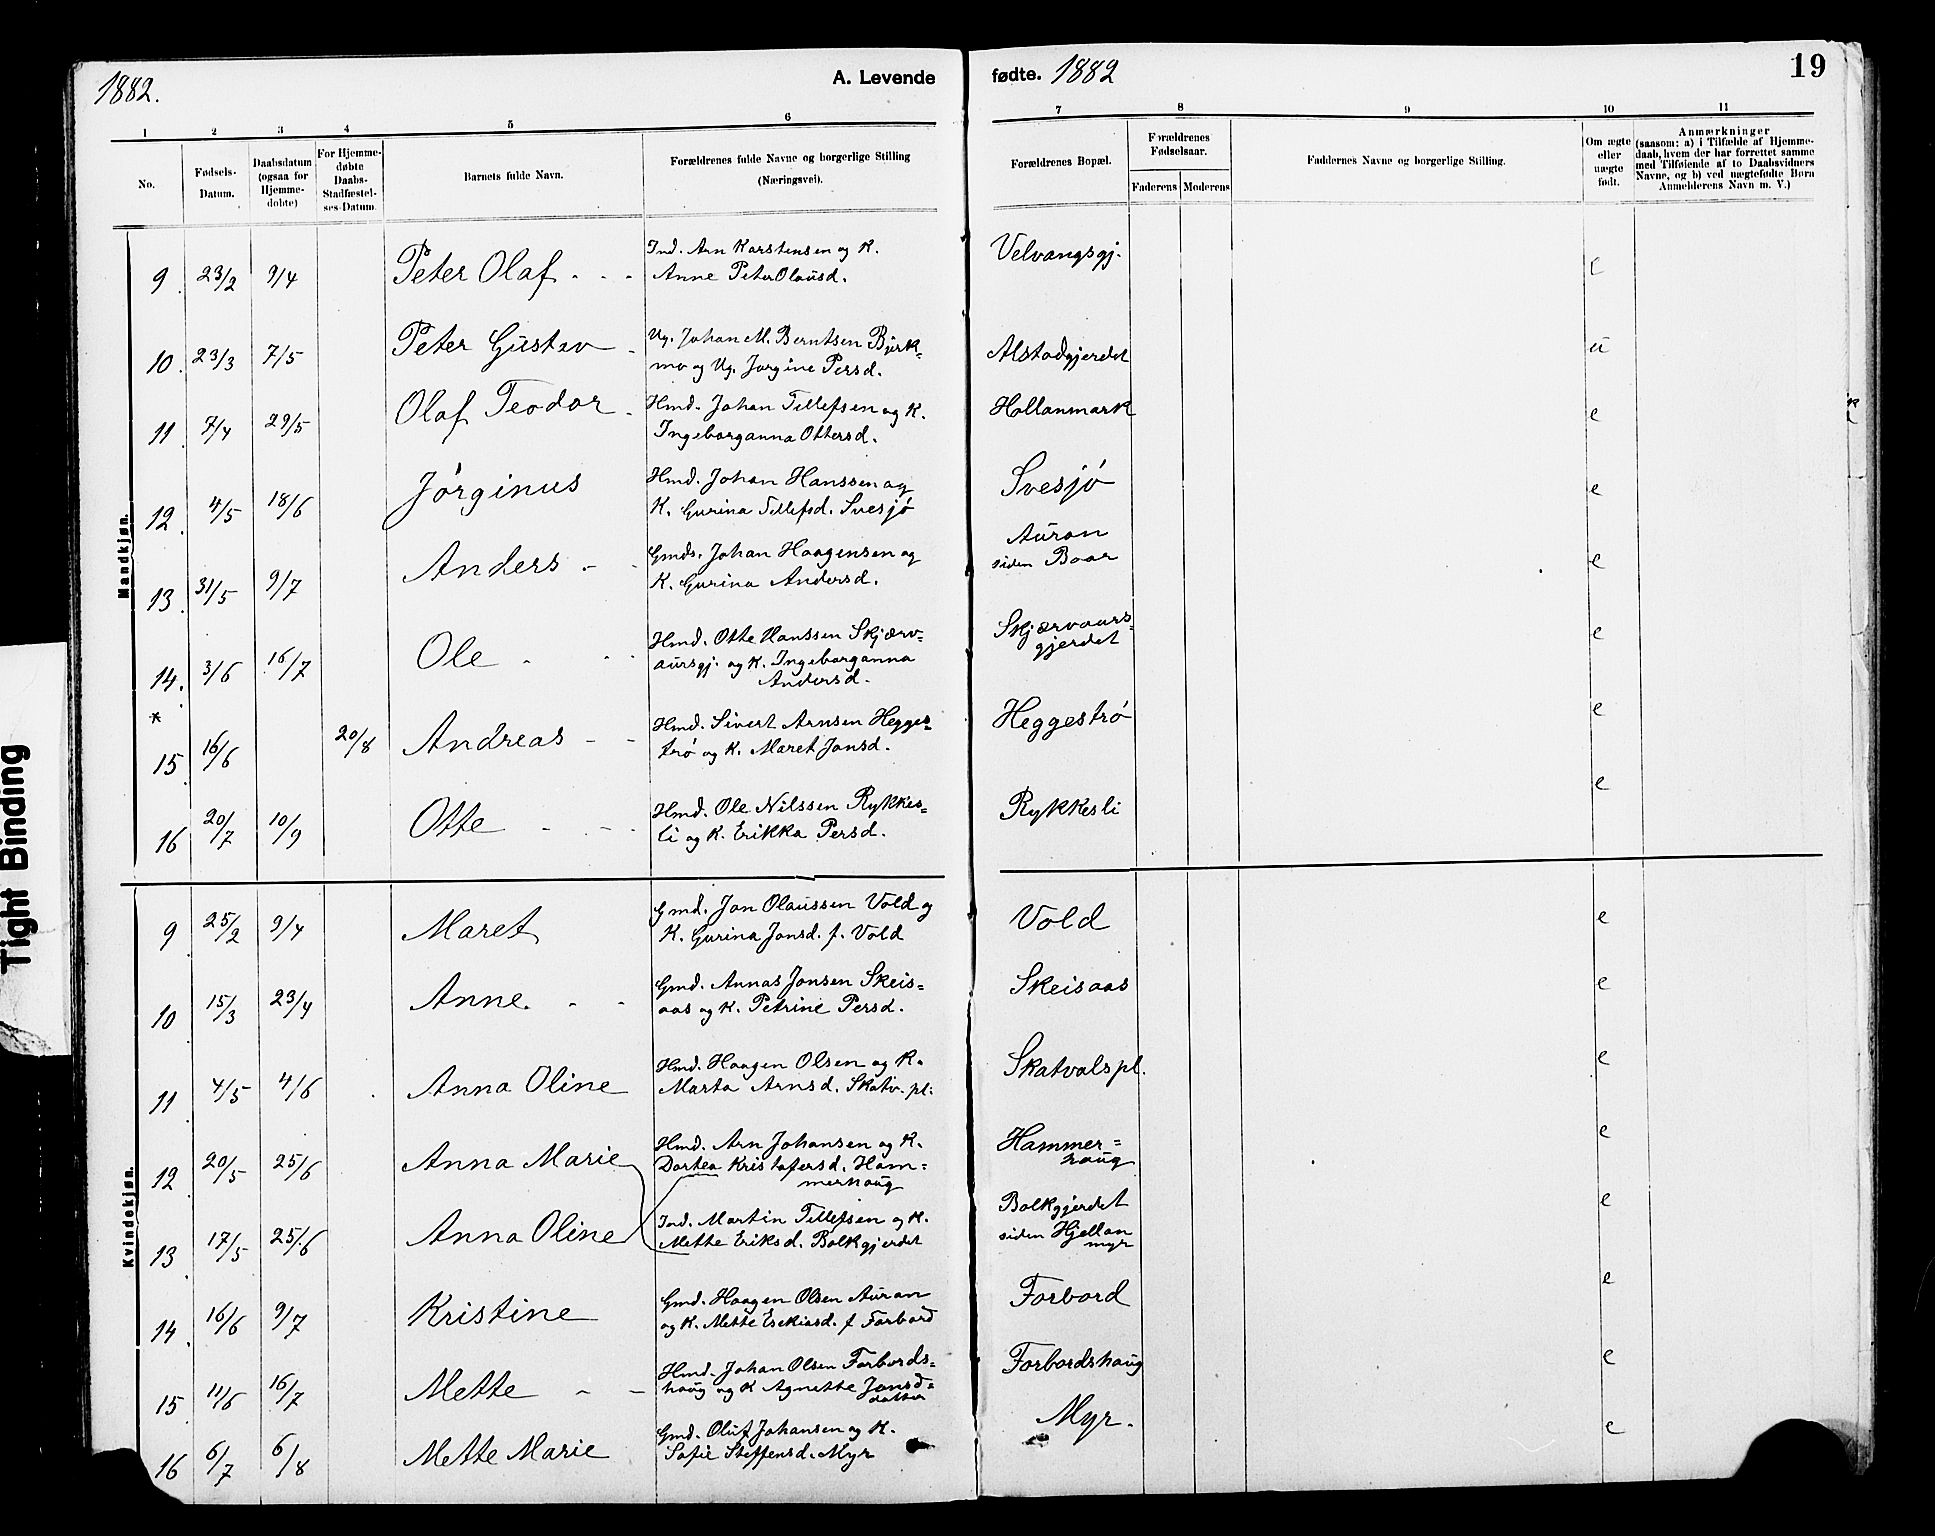 1882.
A. Levende
fødte. 1882
19
1 2 3 4 5 6 7 8 9 10 11
No.
Fødsels-
Datum.
Daabsdatum
(ogsaa for
Hjemme-
døbte)
For Hjemme-
døbte
Daabs-
Stadfæstel-
ses-Datum.
Barnets fulde Navn.
Forældrenes fulde Navne og borgerlige Stilling
(Næringsvei).
Forældrenes Bopæl.
Forældrenes
Fødselsaar.
Faderens Moderens
Faddernes Navne og borgerlige Stilling.
Om ægte
eller
uægte
født.
Anmærkninger
(saasom: a) i Tilfælde af Hjemme-
daab, hvem der har forrettet samme
med Tilføiende af to Daabsvidners
Navne, og b) ved uægtefødte Børn
Anmelderens Navn m. V.)
Mandkjøn.
9. 23/2 9/4 Peter Olaf - - - Ind. Arn Karstensen og K.
Anne PeterOlausd. Velvangsgj. e
10. 23/3 7/5 Peter Gustav - Ug. Johan M. Berntsen Bjørk=
mo og Ug. Jorgine Persd. Alstadgjerdet u
11. 7/4 29/5 Olaf Teodor - Hmd. Johan Tellefsen og K.
Ingeborganna Ottersd. Hollanmark e
12. 4/5 18/6 Jórginus Hmd. Johan Hanssen og
K. Gurina Tellefsd. Svesjó Svesjó e
13. 31/5 9/7 Anders - - Gmds. Johan Haagensen og
K. Gurina Andersd. Auran
siden Baar e
14. 3/6 16/7 Ole - - - Hmd. Otte Hanssen Skjærv=
aursgj. og K. Ingeborganna
Andersd. Skjærvaurs=
gjerdet e
*
15. 16/6 20/8 Andreas - - Hmd. Sivert Arnsen Hegges=
tró og K. Maret Jonsd. Heggestró e
16 20/7 10/9 Otte - - - Hmd. Ole Nilssen Rykkes=
li og K. Erikka Persd. Rykkesli e
Kvindekjøn.
9 25/2 9/4 Maret Gmd. Jon Olaussen Vold og
K. Gurina Jonsd. f. Vold Vold e
10 15/3 23/4 Anne. - - Gmd. Annas Jonsen Skeis=
aas og K. Petrine Persd. Skeisaas e
11 4/5 4/6 Anna Oline Hmd. Haagen Olsen og K.
Marta Arnsd. Skatv. pl. Skatvalspl. e
12 20/5 25/6 Anna Marie Hmd. Arn Johansen og K.
Dortea Kristofersd. Ham=
merhaug Hammer=
haug e
13 17/5 25/6 Anna Oline Ind. Martin Tellefsen og K.
Mette Eriksd. Balkgjerdet Balkgjerdet
siden Hjellan
myr e
14. 16/6 9/7 Kristine Gmd. Haagen Olsen Auran
og K. Mette Esekiasd. f Forbord Forbord e
15 11/6 16/7 Mette - - Hmd. Johan Olsen Forbords=
haug og K Agnette Jonsd=
datter Forbordshaug e
16 6/7 6/8 Mette Marie Gmd. Oluf Johansen og K.
Sofie Steffensd. Myr Myr. e
Tight Binding